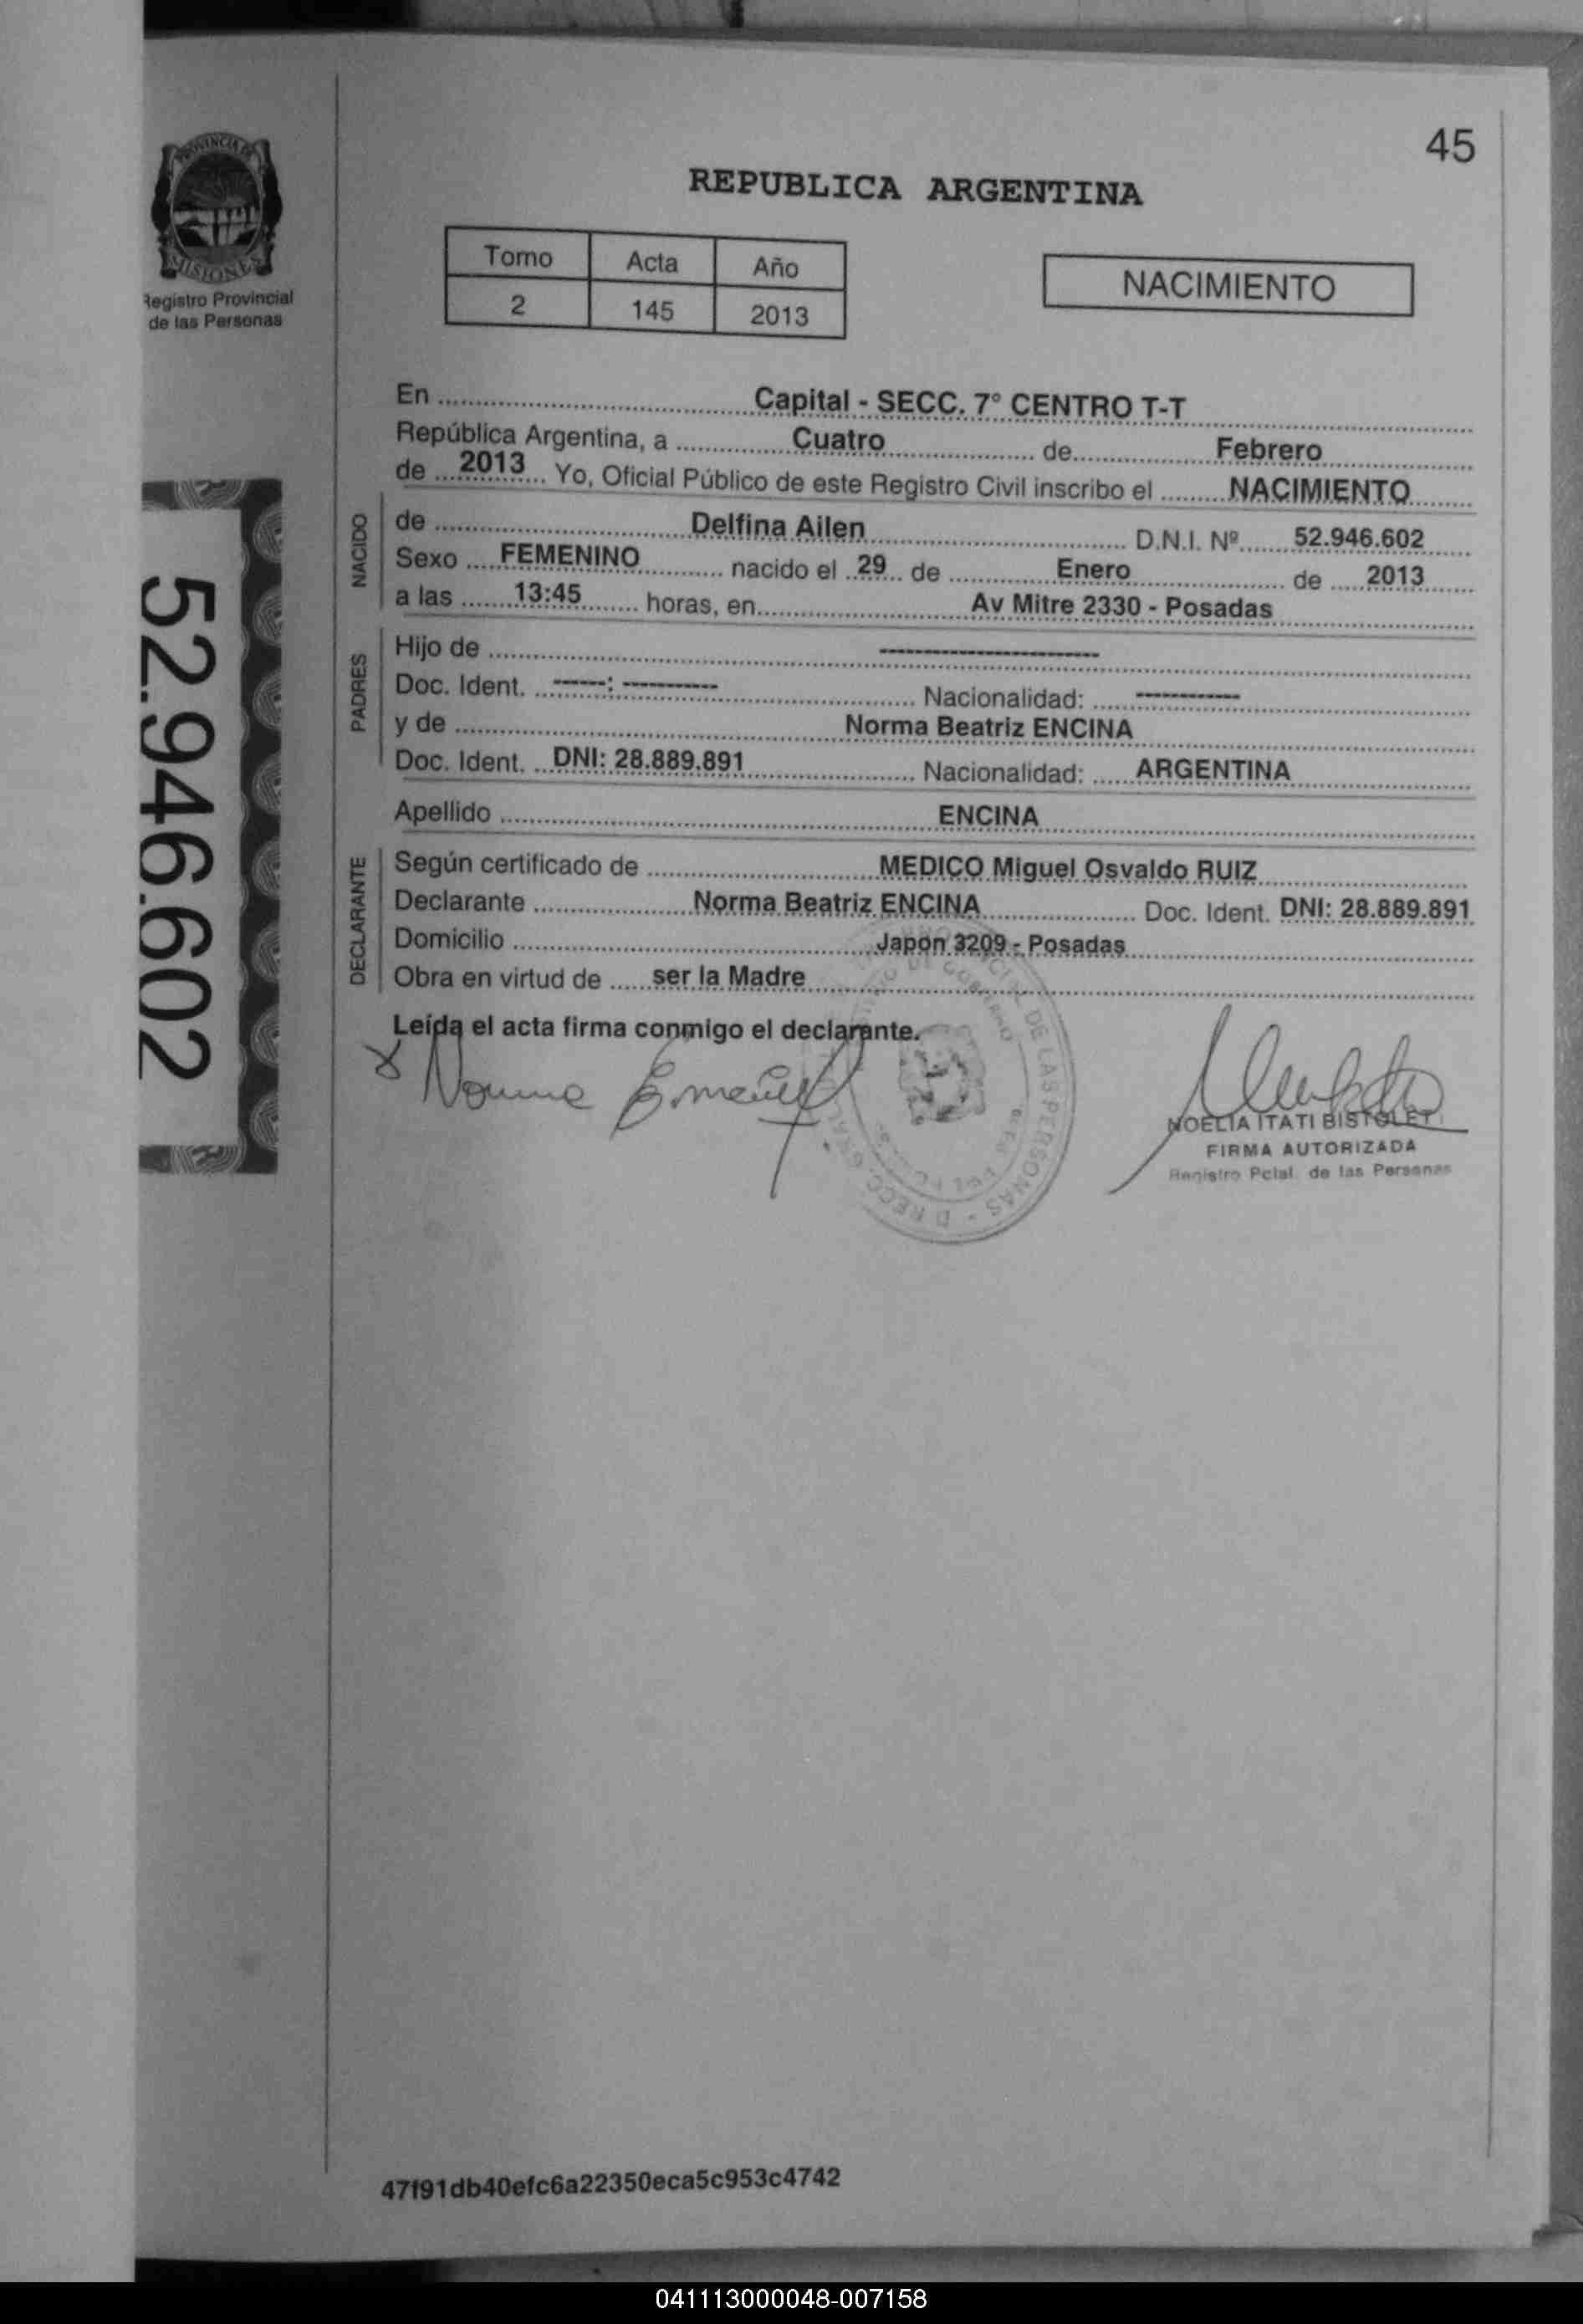 45
PROVINCIA DE
MISIONES
Registro Provincial
de las Personas
REPUBLICA ARGENTINA
Tomo Acta Año
2 145 2013
NACIMIENTO
En Capital - SECC. 7° CENTRO T-T
República Argentina, a Cuatro de Febrero
de 2013 Yo, Oficial Público de este Registro Civil inscribo el NACIMIENTO
NACIDO
de Delfina Ailen D.N.I. Nº 52.946.602
Sexo FEMENINO nacido el 29 de Enero de 2013
a las 13:45 horas, en Av Mitre 2330 - Posadas
PADRES
Hijo de ----------------------
Doc. Ident. ------: ---------- Nacionalidad: -----------
y de Norma Beatriz ENCINA
Doc. Ident. DNI: 28.889.891 Nacionalidad: ARGENTINA
Apellido ENCINA
DECLARANTE
Según certificado de MEDICO Miguel Osvaldo RUIZ
Declarante Norma Beatriz ENCINA Doc. Ident. DNI: 28.889.891
Domicilio Japón 3209 - Posadas
Obra en virtud de ser la Madre
Leída el acta firma conmigo el declarante.
DE LAS PERSONAS
NOELIA ITATI BISTOLET
FIRMA AUTORIZADA
Registro Pcial. de las Personas
52.946.602
47f91db40efc6a22350eca5c953c4742
041113000048-007158